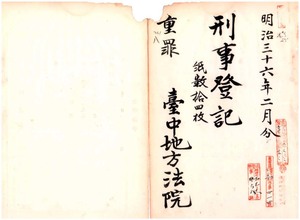 明治三十六年二月分
刑事登記
紙數拾四枚
重罪
臺中地方法院